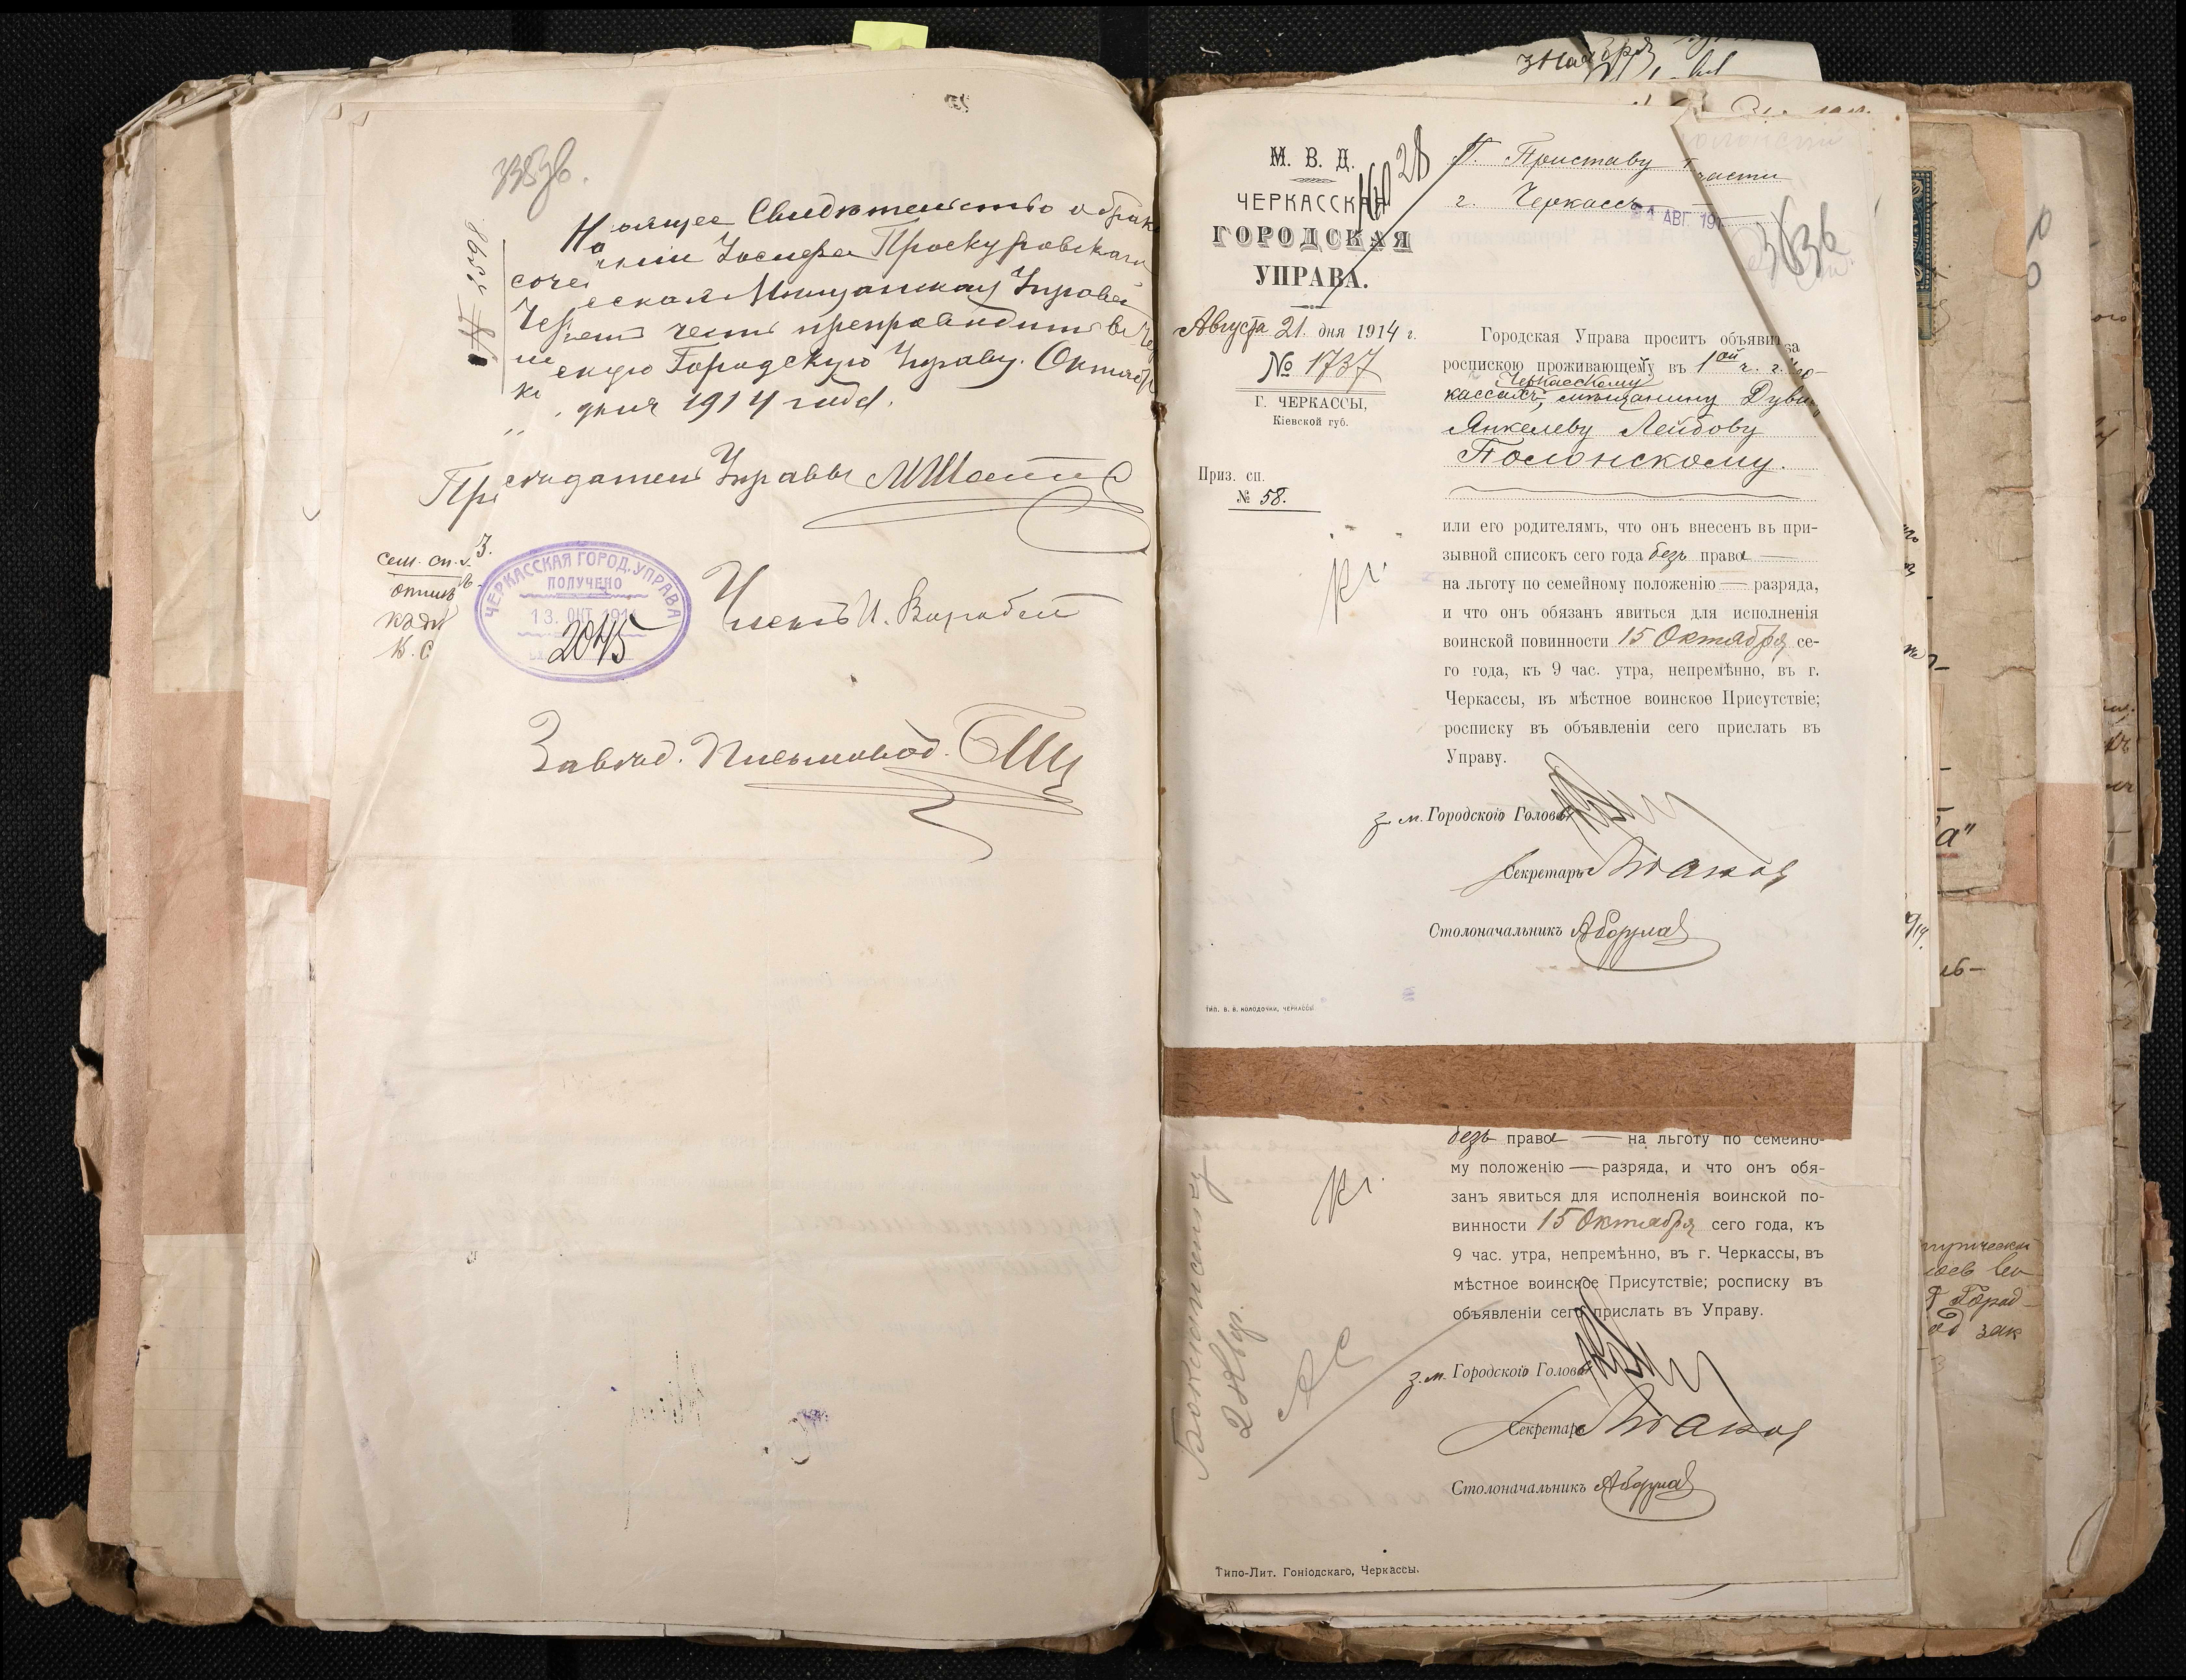 3353б.
№ 2598
Настоящее Свидѣтельство о брако
сочетаніи Іосифа Проскуровскаго
Черкасская Мѣщанская Управа
имѣетъ честь препроводить въ Чер
кскую Городскую Управу. Октября
" дня 1914 года.
Предсѣдатель Управы
сем. сп. 3.
ЧЕРКАССКАЯ ГОРОД. УПРАВА
ПОЛУЧЕНО
13. ОКТ. 1914
2045
Членъ И. Воробей
Завѣд. Письмовод.
М. В. Д.
ЧЕРКАССКАЯ
ГОРОДСКАЯ
УПРАВА.
Августа 21 дня 1914 г.
№ 1737
Г. ЧЕРКАССЫ,
Кіевской губ.
Приз. сп.
№ 58.
28
Г. Приставу 1 части
г. Черкассъ
21 АВГ. 191
3636
Городская Управа проситъ объявить за
роспискою проживающему въ 1ой ч. г. Чер-
Черкасскому
кассахъ, мѣщанину Дувиду
Янкелеву Лейбову
Полонскому.
или его родителямъ, что онъ внесенъ въ при-
зывной списокъ сего года безъ права —
на льготу по семейному положенію — разряда,
и что онъ обязанъ явиться для исполненія
воинской повинности 15 Октября се-
го года, къ 9 час. утра, непремѣнно, въ г.
Черкассы, въ мѣстное воинское Присутствіе;
росписку въ объявленіи сего прислать въ
Управу.
з. м. Городского Головы
Секретарь
Столоначальникъ
ТИП. В. В. КОЛОДОЧКИ, ЧЕРКАССЫ
безъ права — на льготу по семейно-
му положенію — разряда, и что онъ обя-
занъ явиться для исполненія воинской по-
винности 15 Октября сего года, къ
9 час. утра, непремѣнно, въ г. Черкассы, въ
мѣстное воинское Присутствіе; росписку въ
объявленіи сего прислать въ Управу.
з. м. Городского Головы
Секретарь
Столоначальникъ
Типо-Лит. Гоніодскаго, Черкассы.